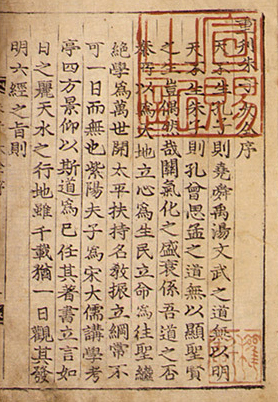 重刊朱子公序
天不生孔子則堯舜禹湯文武之道無以明
天不生朱子則孔曾思孟之道無以顯聖賢
之生豈偶然哉關氣化之盛衰係吾道之否
泰所以為天地立心為生民立命為往聖繼
絶學為萬世開太平扶持名敎振立綱常不
可一日而無也紫陽夫子為宋大儒講學考
亭四方景仰以斯道為己任其著書立言如
日之麗天水之行地雖千載猶一日觀其發
明六經之旨則